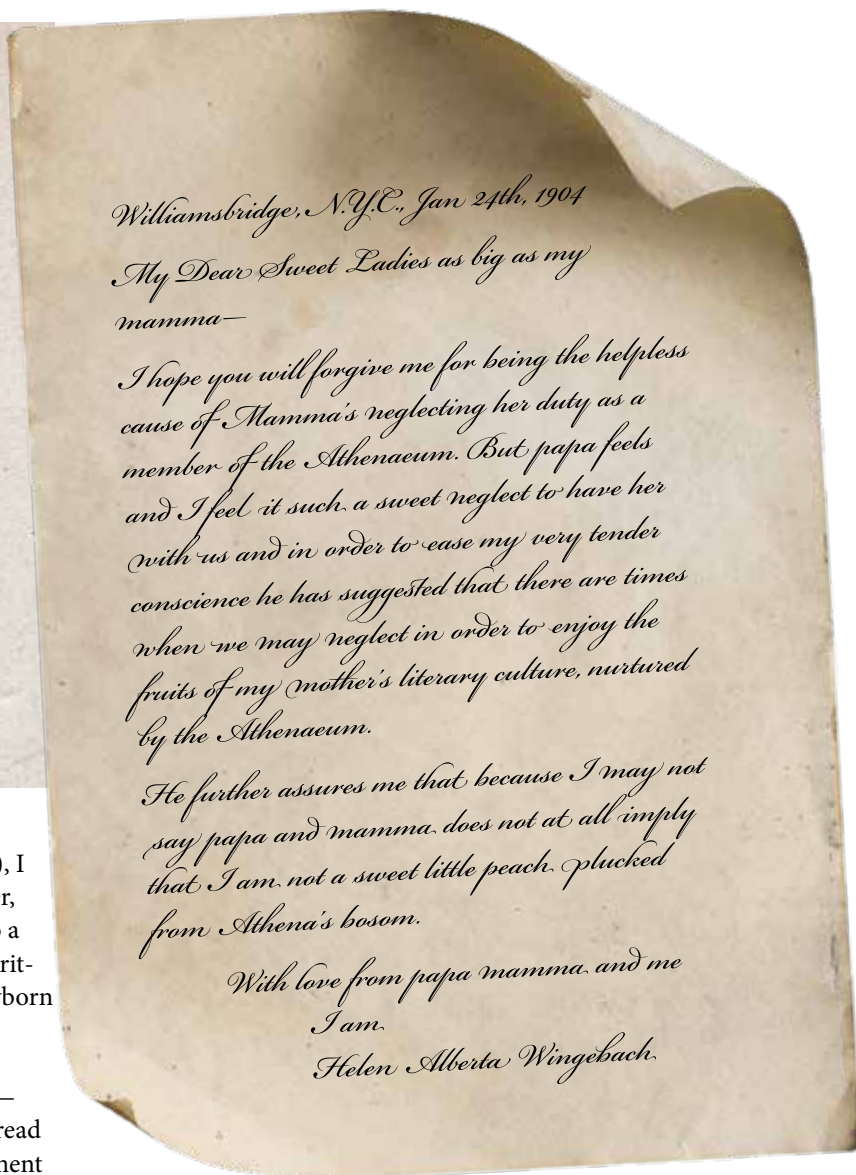 Williamsbridge, N.Y.C., Jan 24th, 1904
My Dear Sweet Ladies as big as my
mamma—
I hope you will forgive me for being the helpless
cause of Mamma's neglecting her duty as a
member of the Athenaeum. But papa feels
and I feel it such a sweet neglect to have her
with us and in order to ease my very tender
conscience he has suggested that there are times
when we may neglect in order to enjoy the
fruits of my mother's literary culture, nurtured
by the Athenaeum.
He further assures me that because I may not
say papa and mamma does not at all imply
that I am not a sweet little peach plucked
from Athena's bosom.
With love from papa mamma and me
I am
Helen Alberta Wingebach
), I
r,
a
rit-
born
—
read
ment